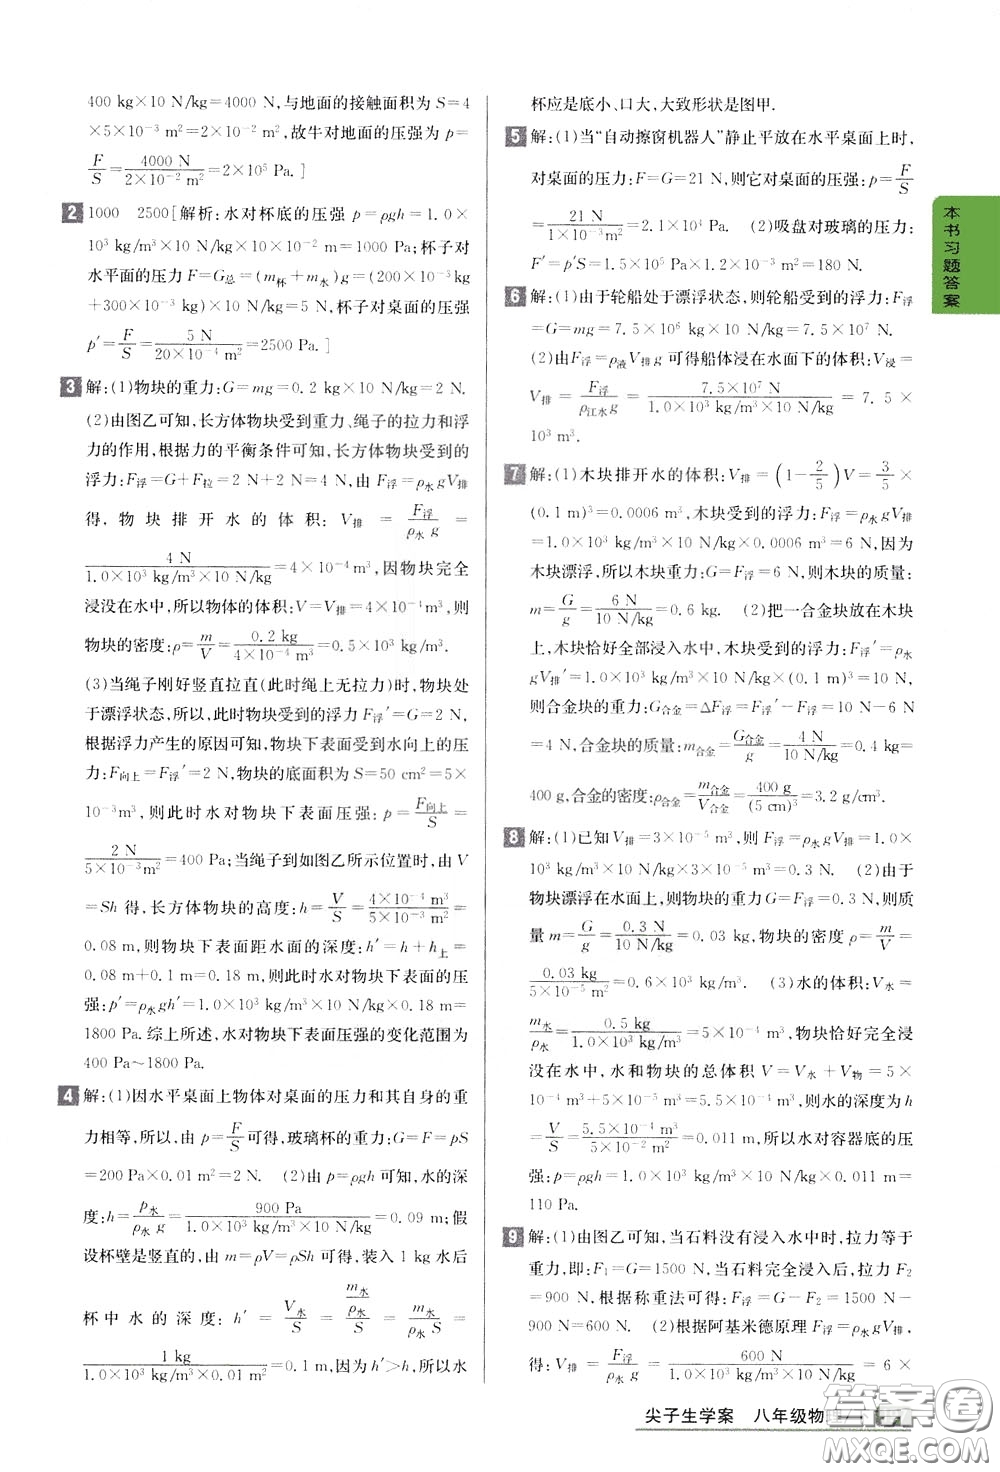 400 kg×10 N/kg=4000 N,与地面的接触面积为 S=4
×5×10⁻³ m²=2×10⁻² m²,故牛对地面的压强为 p=
F/S=4000 N/2×10⁻² m²=2×10⁵ Pa.]
2 1000 2500[解析:水对杯底的压强 p=ρgh=1.0×
10³ kg/m³×10 N/kg×0.1 m=1000 Pa;杯子对
水平面的压力 F=G总=(m杯+m水)g=(200×10⁻³kg
+300×10⁻³ kg)×10 N/kg=5 N,杯子对桌面的压强
p′=F/S=5 N/20×10⁻⁴ m²=2500 Pa.]
3 解:(1)物块的重力:G=mg=0.2 kg×10 N/kg=2 N.
(2)由图乙可知,长方体物块受到重力、绳子的拉力和浮
力的作用,根据力的平衡条件可知,长方体物块受到的
浮力:F浮=G+F拉=2 N+2 N=4 N,由 F浮=ρ水gV排
得,物块排开水的体积:V排=F浮/ρ水 g=
4 N/1.0×10³ kg/m³×10 N/kg=4×10⁻⁴m³,因物块完全
浸没在水中,所以物体的体积:V=V排=4×10⁻⁴m³,则
物块的密度:ρ=m/V=0.2 kg/4×10⁻⁴ m³=0.5×10³ kg/m³.
(3)当绳子刚好竖直拉直(此时绳上无拉力)时,物块处
于漂浮状态,所以,此时物块受到的浮力 F浮′=G=2 N,
根据浮力产生的原因可知,物块下表面受到水向上的压
力:F向上=F浮′=2 N,物块的底面积 S=50 cm²=5×
10⁻³m³,则此时水对物块下表面压强:p=F向上/S=
2 N/5×10⁻³ m²=400 Pa;当绳子到如图乙所示位置时,由 V
=Sh 得,长方体物块的高度:h=V/S=4×10⁻⁴ m³/5×10⁻³ m²=
0.08 m,则物块下表面距水面的深度:h′=h+h上=
0.08 m+0.1 m=0.18 m,则此时水对物块下表面的压
强:p′=ρ水gh′=1.0×10³ kg/m³×10 N/kg×0.18 m=
1800 Pa.综上所述,水对物块下表面压强的变化范围为
400 Pa~1800 Pa.
4 解:(1)因水平桌面上物体对桌面的压力和其自身的重
力相等,所以,由 p=F/S可得,玻璃杯的重力:G=F=pS
=200 Pa×0.01 m²=2 N. (2)由 p=ρgh 可知,水的深
度:h=p水/ρ水 g=900 Pa/1.0×10³ kg/m³×10 N/kg=0.09 m;假
设杯壁是竖直的,由 m=ρV=ρSh 可得,装入 1 kg 水后
杯中水的深度:h′=V水/S=m水/ρ水/S=m水/ρ水 S=
1 kg/1.0×10³ kg/m³×0.01 m²=0.1 m,因为 h′>h,所以水
杯应是底小、口大,大致形状是图甲.
5 解:(1)当“自动擦窗机器人”静止平放在水平桌面上时,
对桌面的压力:F=G=21 N,则它对桌面的压强:p=F/S
=21 N/1×10⁻³ m²=2.1×10⁴ Pa. (2)吸盘对玻璃的压力:
F′=p′S=1.5×10⁵ Pa×1.2×10⁻³ m²=180 N.
6 解:(1)由于轮船处于漂浮状态,则轮船受到的浮力:F浮
=G=mg=7.5×10⁶ kg×10 N/kg=7.5×10⁷ N.
(2)由F浮=ρ液V排g可得船体浸在水面下的体积:V浸=
V排=F浮/ρ江水 g=7.5×10⁷ N/1.0×10³ kg/m³×10 N/kg=7.5×
10³ m³.
7 解:(1)木块排开水的体积:V排=(1−2/5)V=3/5×
(0.1 m)³=0.0006 m³,木块受到的浮力:F浮=ρ水gV排
=1.0×10³ kg/m³×10 N/kg×0.0006 m³=6 N,因为
木块漂浮,所以木块重力:G=F浮=6 N,所以木块的质量:
m=G/g=6 N/10 N/kg=0.6 kg. (2)把一合金块放在木块
上,木块恰好全部浸入水中,木块受到的浮力:F浮′=ρ水
gV排′=1.0×10³ kg/m³×10 N/kg×(0.1 m)³=10 N,
则合金块的重力:G合金=ΔF浮=F浮′−F浮=10 N−6 N
=4 N,合金块的质量:m合金=G合金/g=4 N/10 N/kg=0.4 kg=
400 g,合金的密度:ρ合金=m合金/V合金=400 g/(5 cm)³=3.2 g/cm³.
8 解:(1)已知V排=3×10⁻⁵ m³,则 F浮=ρ水gV排=1.0×
10³ kg/m³×10 N/kg×3×10⁻⁵ m³=0.3 N. (2)由于
物块漂浮在水面上,则物块的重力 G=F浮=0.3 N,则质
量 m=G/g=0.3 N/10 N/kg=0.03 kg,物块的密度 ρ=m/V=
0.03 kg/5×10⁻⁵ m²=0.6×10³ kg/m³. (3)水的体积:V水=
m水/ρ水=0.5 kg/1.0×10³ kg/m³=5×10⁻⁴ m³,物块恰好完全浸
没在水中,水和物块的总体积 V=V水+V物=5×
10⁻⁴ m³+5×10⁻⁵ m³=5.5×10⁻⁴ m³,水的深度为 h
=V/S=5.5×10⁻⁴ m³/5×10⁻² m²=0.011 m,所以水对容器底的压
强:p=ρgh=1.0×10³ kg/m³×10 N/kg×0.011 m=
110 Pa.
9 解:(1)由图乙可知,当石料没有浸入水中时,拉力等于
重力,即:F₁=G=1500 N,当石料完全浸入后,拉力 F₂
=900 N,根据称重法可得:F浮=G−F₂=1500 N−
900 N=600 N. (2)根据阿基米德原理 F浮=ρ水gV排,
得:V排=F浮/ρ水 g=600 N/1.0×10³ kg/m³×10 N/kg=6×
本书习题答案
尖子生学案 八年级物理
答案圈
MXQE.COM